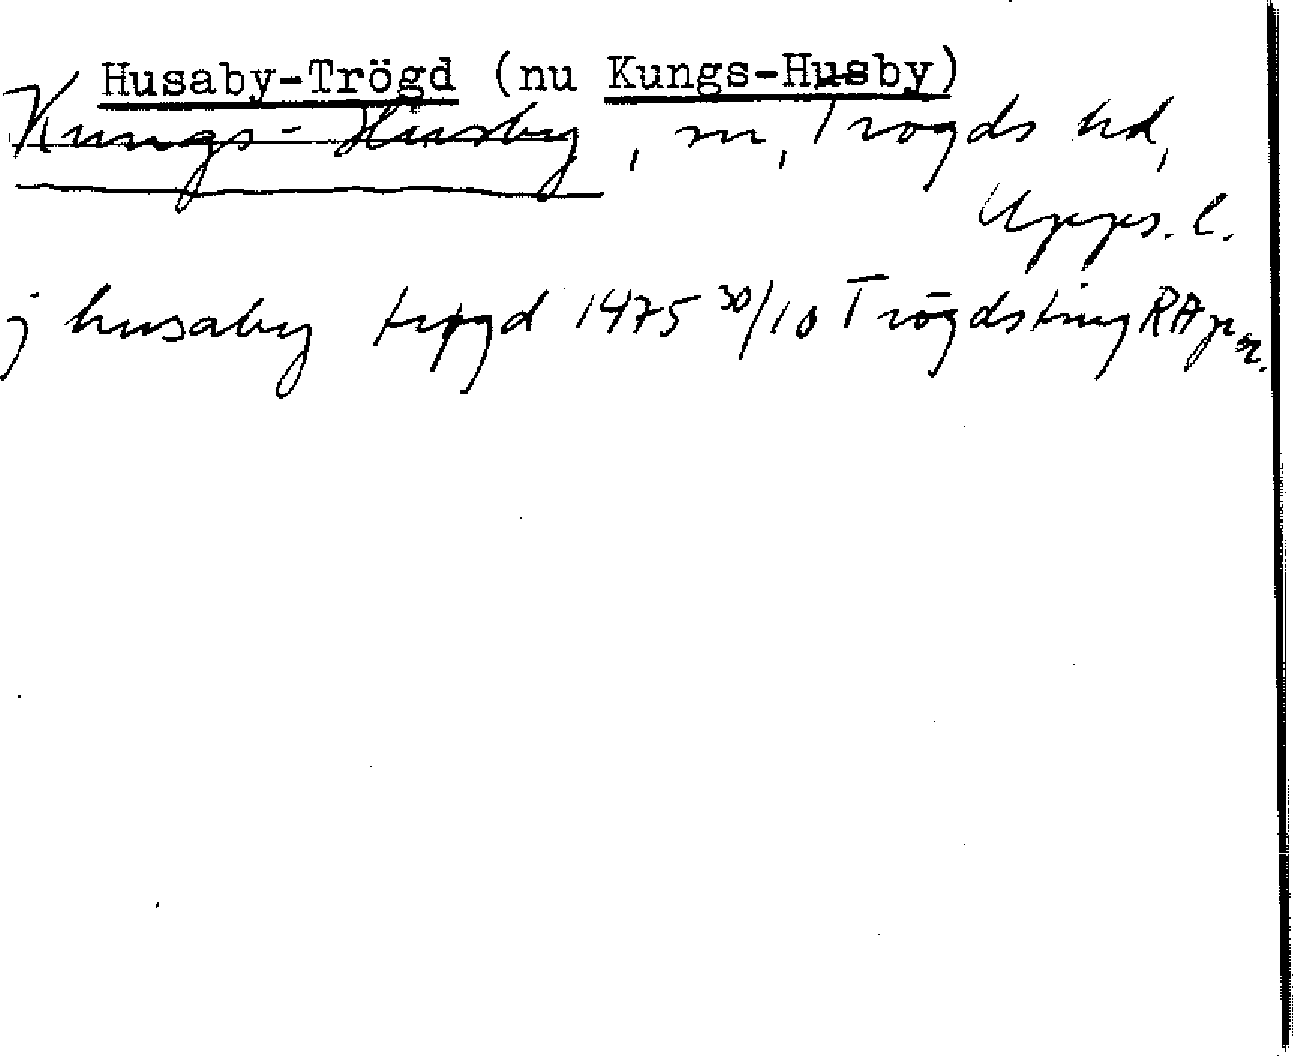 Husaby-Trögd (nu Kungs-Husby)
Kungs-Husby, sn, Trögds hd,
Upps. l.
j husaby trøgd 1475 30/10 Trögdsting RAp